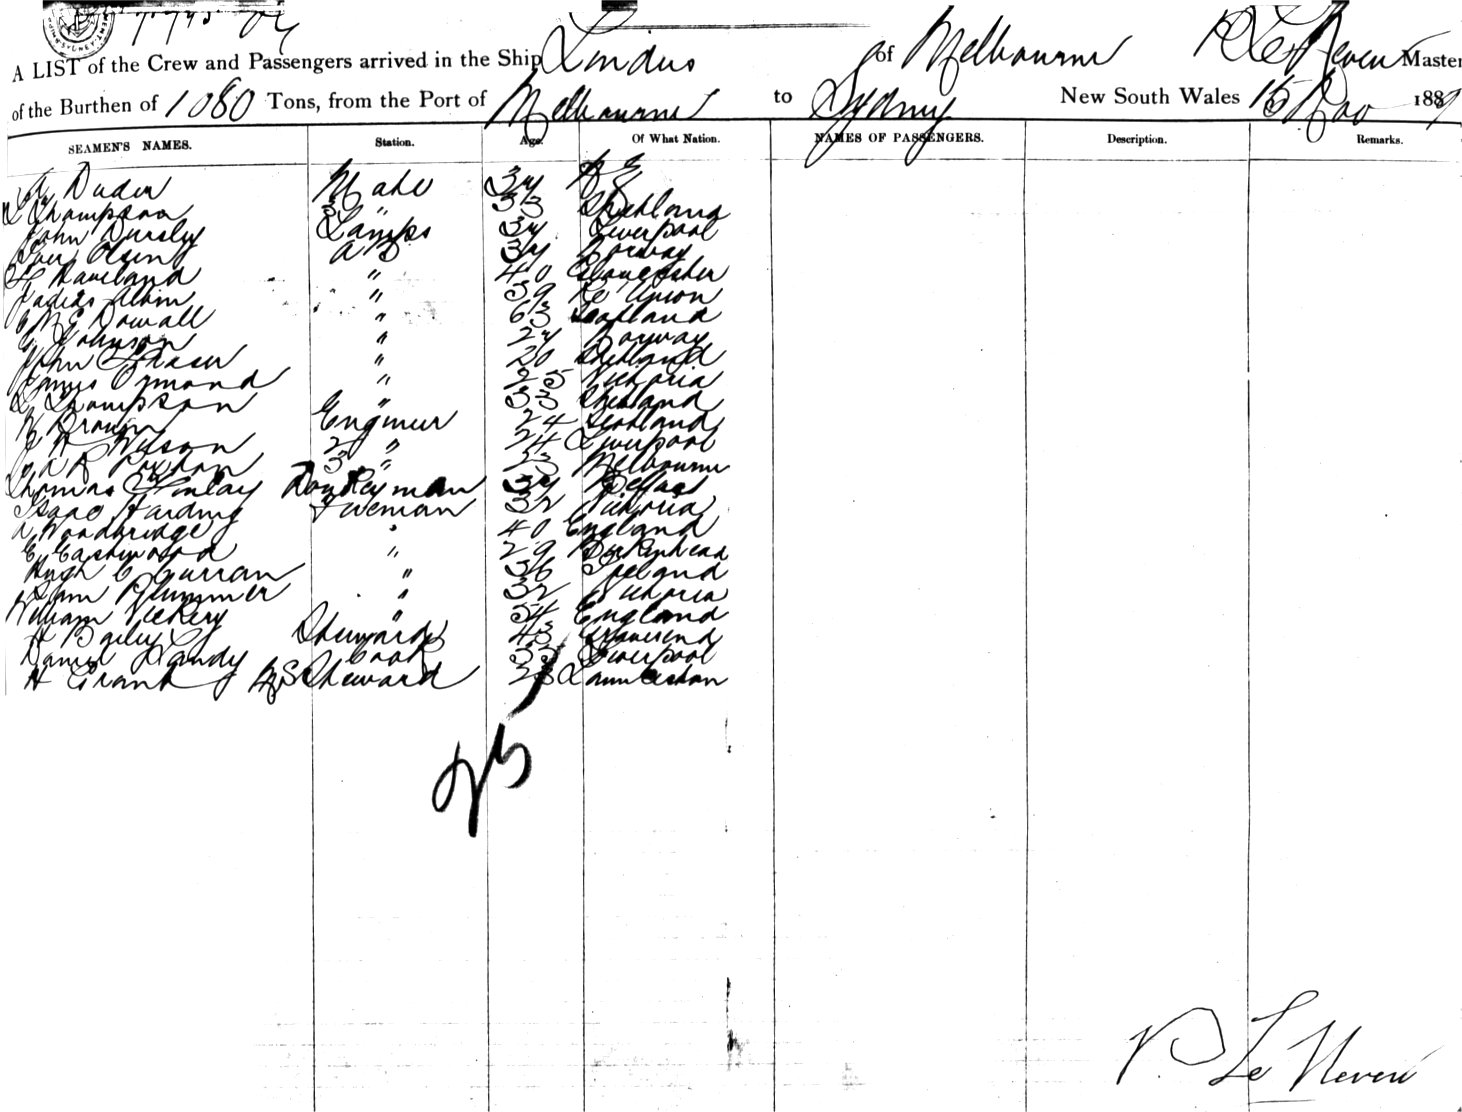 A LIST of the Crew and Passengers arrived in the Ship Lindus of Melbourne P Le Neveu Master
of the Burthen of 1080 Tons, from the Port of Melbourne to Sydney New South Wales 15 Nov 1887
SEAMEN'S NAMES. Station. Age. Of What Nation. NAMES OF PASSENGERS. Description. Remarks.
Mate 34
L Thompson 2 " 33 Shetland
John Dursley Lamps 34 Liverpool
Iver Olsen AB 34 Norway
H Haveland " 40 Gloucester
" 39 Re Union
" 63 Scotland
Johnson " 24 Norway
John Fraser " 20 Shetland
James Ormond " 25 Victoria
L Thompson " 33 Shetland
W Brown Engineer 24 Scotland
Wilson 2 " 24 Liverpool
3 " 23 Melbourne
Thomas Finlay Donkeyman 34 Belfast
Isaac Harding Fireman 32 Victoria
A Woodbridge " 40 England
E Eastwood " 29 Birkenhead
Hugh C Curran " 36 Ireland
Sam Plummer " 32 Victoria
William Vickery " 54 England
H Bailey Steward 43 Gravesend
Daniel Landy Cook 33 Liverpool
H Grant Steward 28 Launceston
25
P. Le Neveu